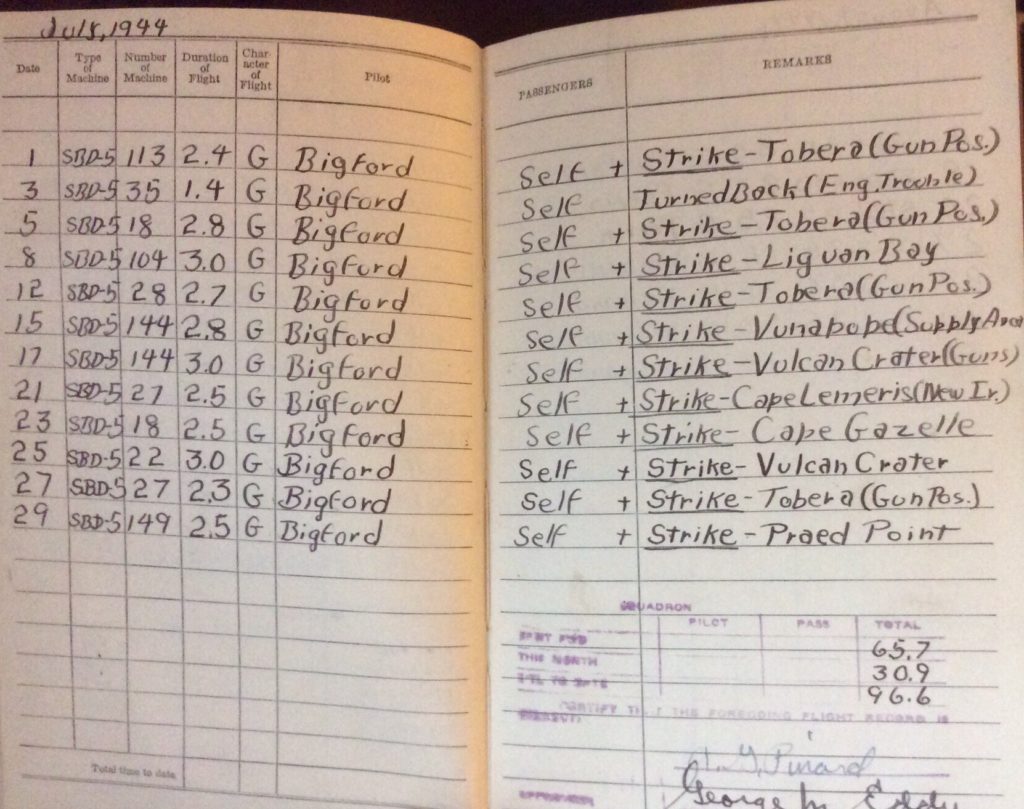 July, 1944
Date Type of Machine Number of Machine Duration of Flight Character of Flight Pilot PASSENGERS REMARKS
1 SBD-5 113 2.4 G Bigford Self + Strike-Tobera(Gun Pos.)
3 SBD-5 35 1.4 G Bigford Self Turned Back (Eng. Trouble)
5 SBD-5 18 2.8 G Bigford Self + Strike-Tobera(Gun Pos.)
8 SBD-5 104 3.0 G Bigford Self + Strike-Liguan Bay
12 SBD-5 28 2.7 G Bigford Self + Strike-Tobera(Gun Pos.)
15 SBD-5 144 2.8 G Bigford Self + Strike-Vunapope(Supply Area
17 SBD-5 144 3.0 G Bigford Self + Strike-Vulcan Crater(Guns)
21 SBD-5 27 2.5 G Bigford Self + Strike-Cape Lemeris(New Ir.)
23 SBD-5 18 2.5 G Bigford Self + Strike-Cape Gazelle
25 SBD-5 22 3.0 G Bigford Self + Strike-Vulcan Crater
27 SBD-5 27 2.3 G Bigford Self + Strike-Tobera(Gun Pos.)
29 SBD-5 149 2.5 G Bigford Self + Strike-Praed Point
SQUADRON
PILOT PASS TOTAL
65.7
THIS MONTH 30.9
96.6
CERTIFY THAT THE FOREGOING FLIGHT RECORD IS
Pinard
Total time to date
George M.